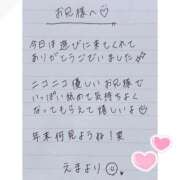 お兄様へ♡
今日は遊びに来てくれて
ありがとうございました
ニコニコ優しいお兄様で
いっぱい舐めて気持ちよく
なってもらえて嬉しいよ
年末何見ようね！笑
えまより